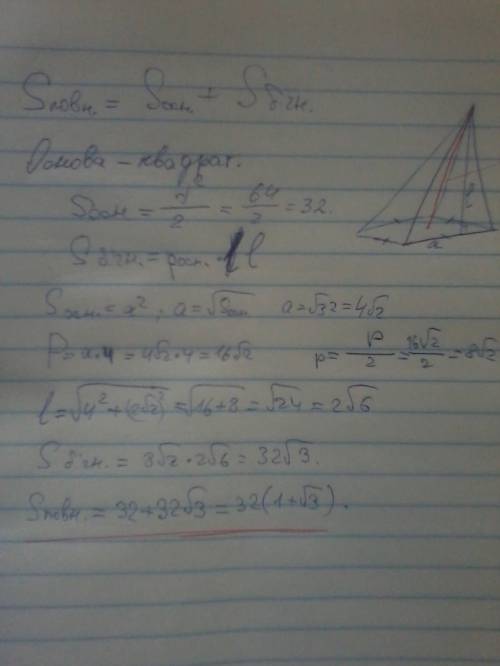 Sповн. = Sосн. + Sбічн.
Основа – квадрат.
Sосн = d²/2 = 64/2 = 32.
Sбічн. = pосн. · l
Sосн. = a² ; a = √Sосн a = √32 = 4√2
P = a·4 = 4√2·4 = 16√2 p = P/2 = 16√2/2 = 8√2
l = √(4² + (2√2)²) = √(16+8) = √24 = 2√6
Sбічн. = 8√2 · 2√6 = 32√3.
Sповн. = 32 + 32√3 = 32(1+√3).
l
a